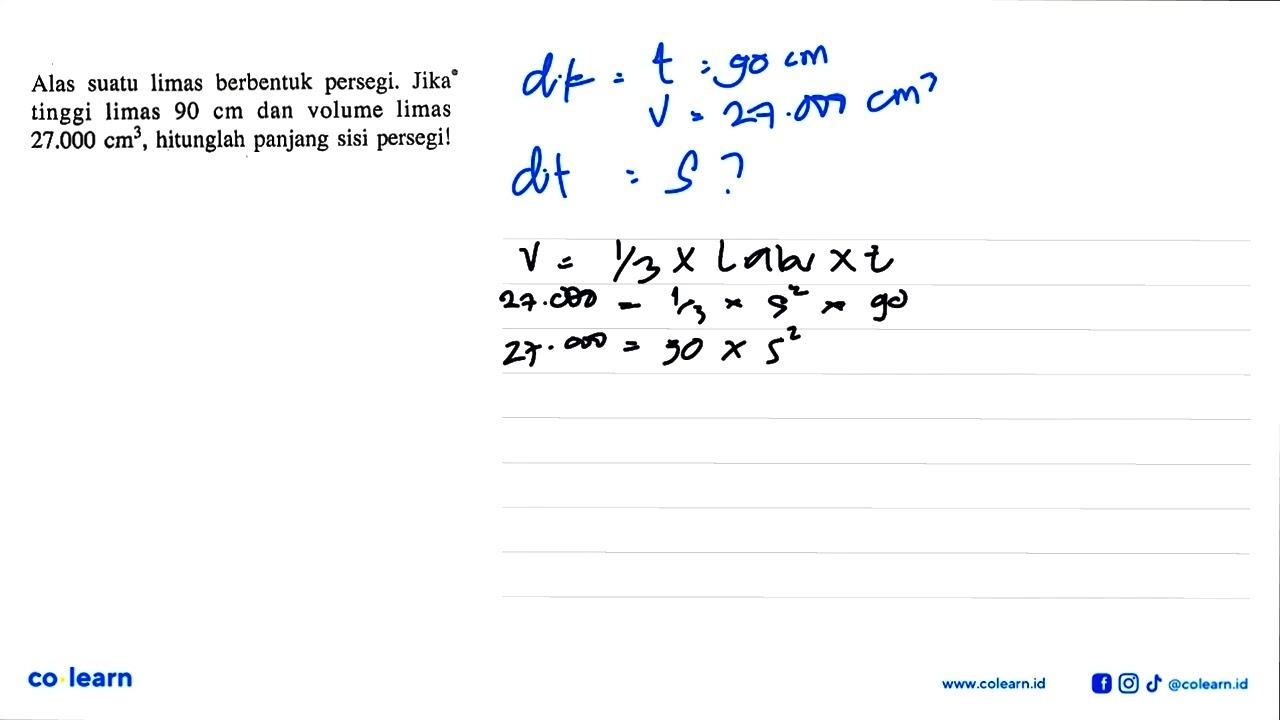 Alas suatu limas berbentuk persegi. Jika
tinggi limas 90 cm dan volume limas
27.000 cm³, hitunglah panjang sisi persegi!
dik = t = 90 cm
V = 27.000 cm³
dit = s ?
V = 1/3 × L alas × t
27.000 = 1/3 × s² × 90
27.000 = 30 × s²
co learn
www.colearn.id
@colearn.id